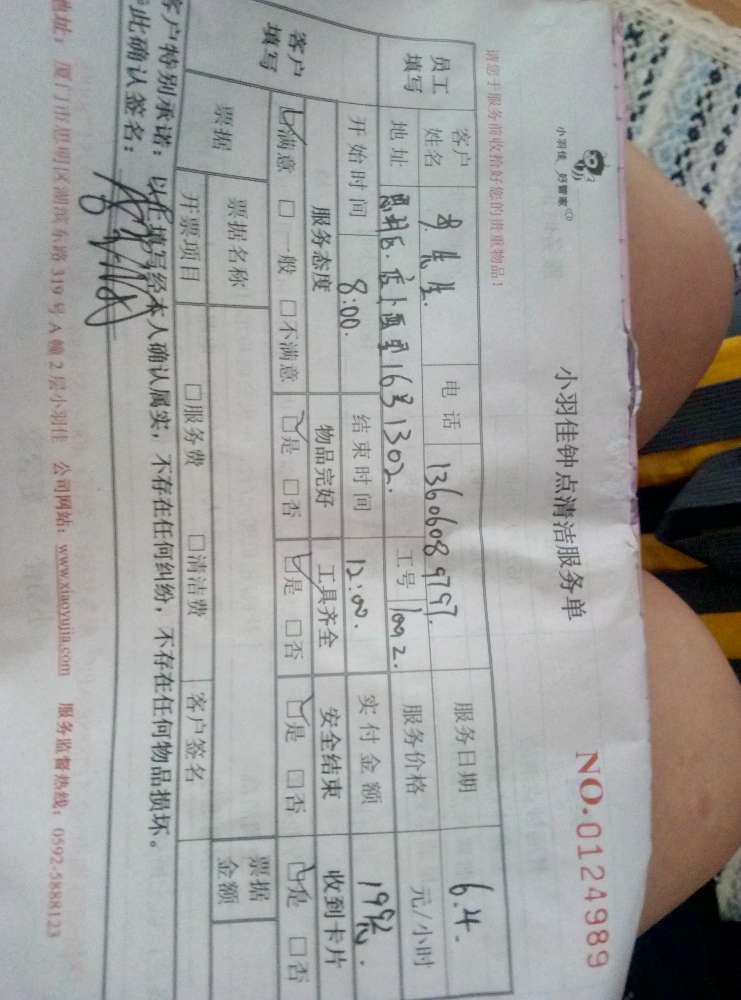 小羽佳 好管家
小羽佳钟点清洁服务单
NO.0124989
请您于服务前收拾好您的贵重物品！
员工填写 客户姓名 先生. 电话 13606089797. 服务日期 6.4.
地址 思明区. 163 1302. 工号 1092. 服务价格 元/小时
开始时间 8:00. 结束时间 12:00. 实付金额 199元.
客户填写 服务态度 物品完好 工具齐全 安全结束 收到卡片
☑满意 □一般 □不满意 ☑是 □否 ☑是 □否 ☑是 □否 ☑是 □否
票据 票据名称 票据金额
开票项目 □服务费 □清洁费 客户签名
客户特别承诺：以上填写经本人确认属实，不存在任何纠纷，不存在任何物品损坏。
此确认签名：
地址：厦门市思明区湖滨东路319号A幢2层小羽佳 公司网站：www.xiaoyujia.com 服务监督热线：0592-5888123